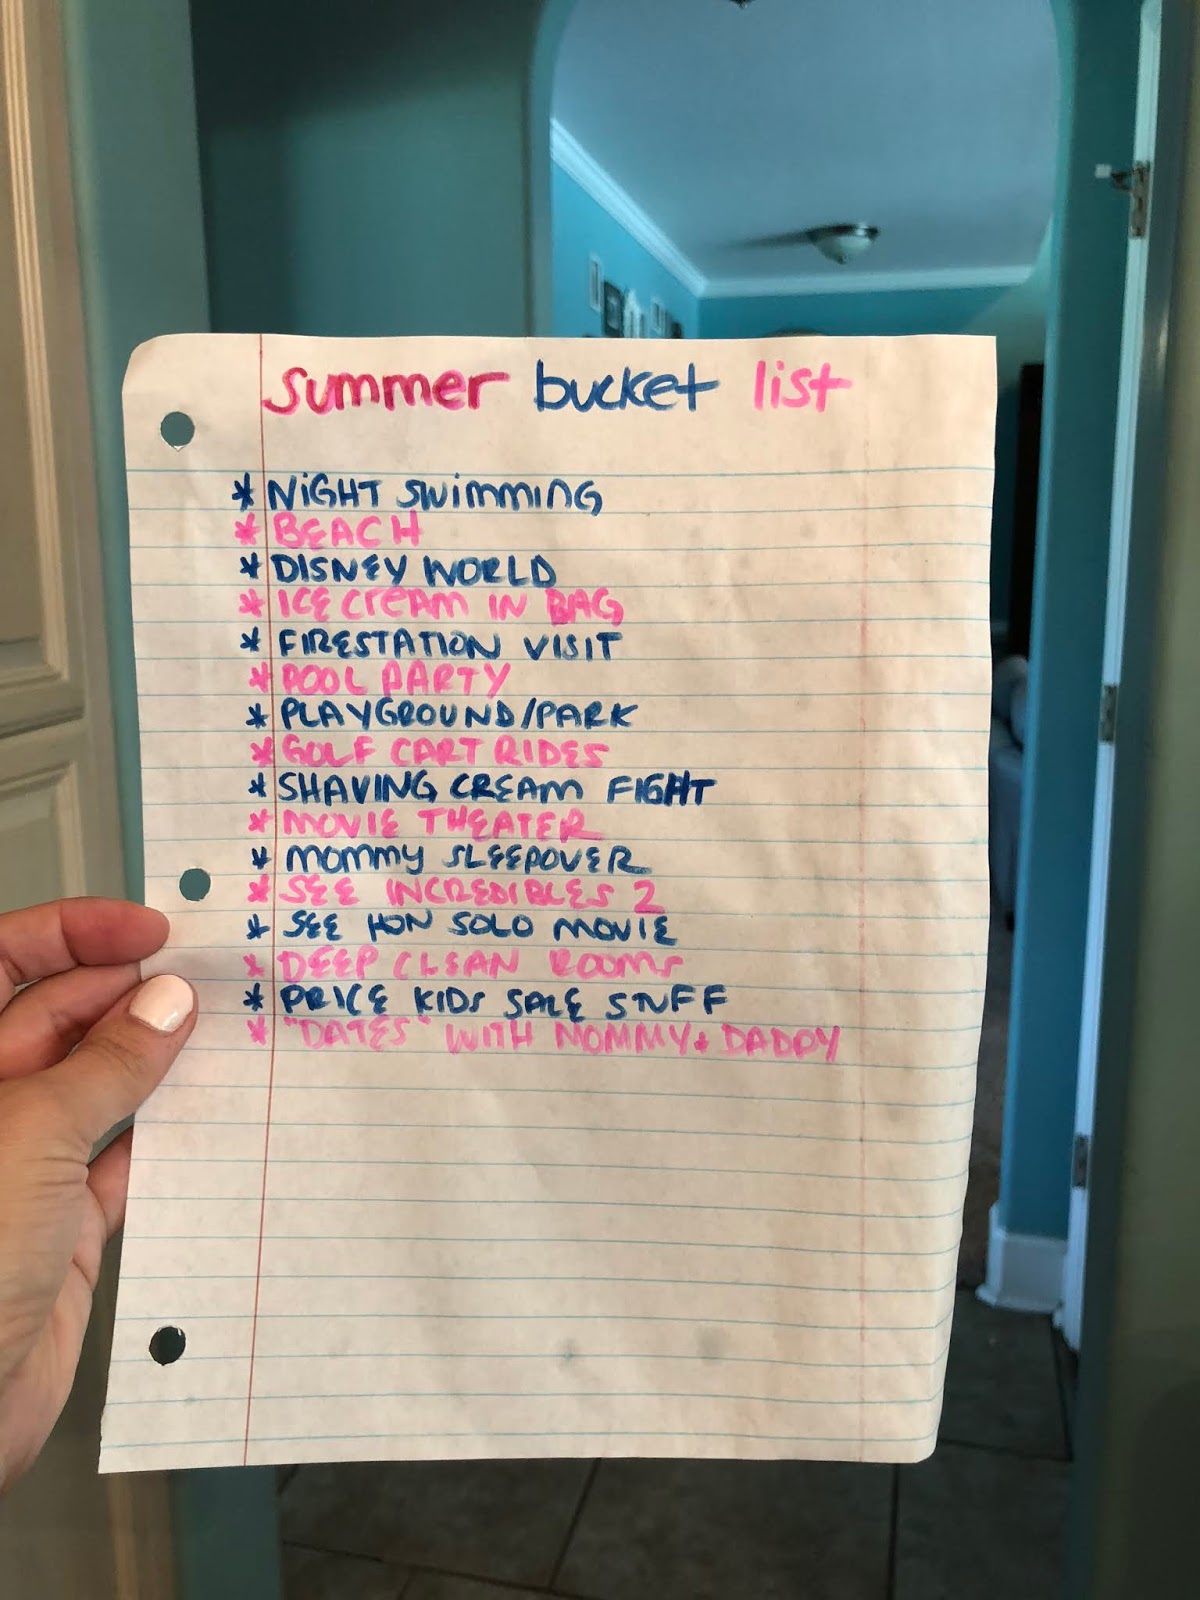 summer bucket list
* NIGHT SWIMMING
* BEACH
* DISNEY WORLD
* ICE CREAM IN BAG
* FIRESTATION VISIT
* POOL PARTY
* PLAYGROUND/PARK
* GOLF CART RIDES
* SHAVING CREAM FIGHT
* MOVIE THEATER
* MOMMY SLEEPOVER
* SEE INCREDIBLES 2
* SEE HON SOLO MOVIE
* DEEP CLEAN ROOMS
* PRICE KIDS SALE STUFF
* "DATES" WITH MOMMY + DADDY